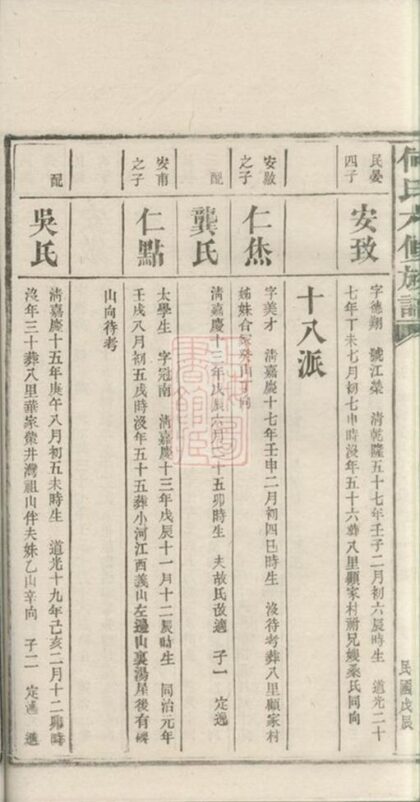 何氏六修族譜
民國戊辰
民晏四子
安致
字德翔 號江榮 清乾隆五十七年壬子二月初六辰時生 道光二十
七年丁未七月初七申時沒年五十六葬八里顧家村附兄嫂桑氏同向
十八派
安敦之子
仁焦
字美才 清嘉慶十七年壬申二月初四巳時生 沒待考葬八里顧家村
姊妹合冢癸山丁向
配
龔氏
清嘉慶十三年戊辰六月二十五卯時生 夫故氏改適 子一 定選
安南之子
仁點
太學生 字冠南 清嘉慶十三年戊辰十一月十二辰時生 同治元年
壬戌八月初五戌時沒年五十五葬小河江西義山左邊山裏湯屋後有碑
山向待考
配
吳氏
清嘉慶十五年庚午八月初五未時生 道光十九年己亥二月十二卯時
沒年三十葬八里華家傍井灣祖山伴夫妹乙山辛向 子二 定